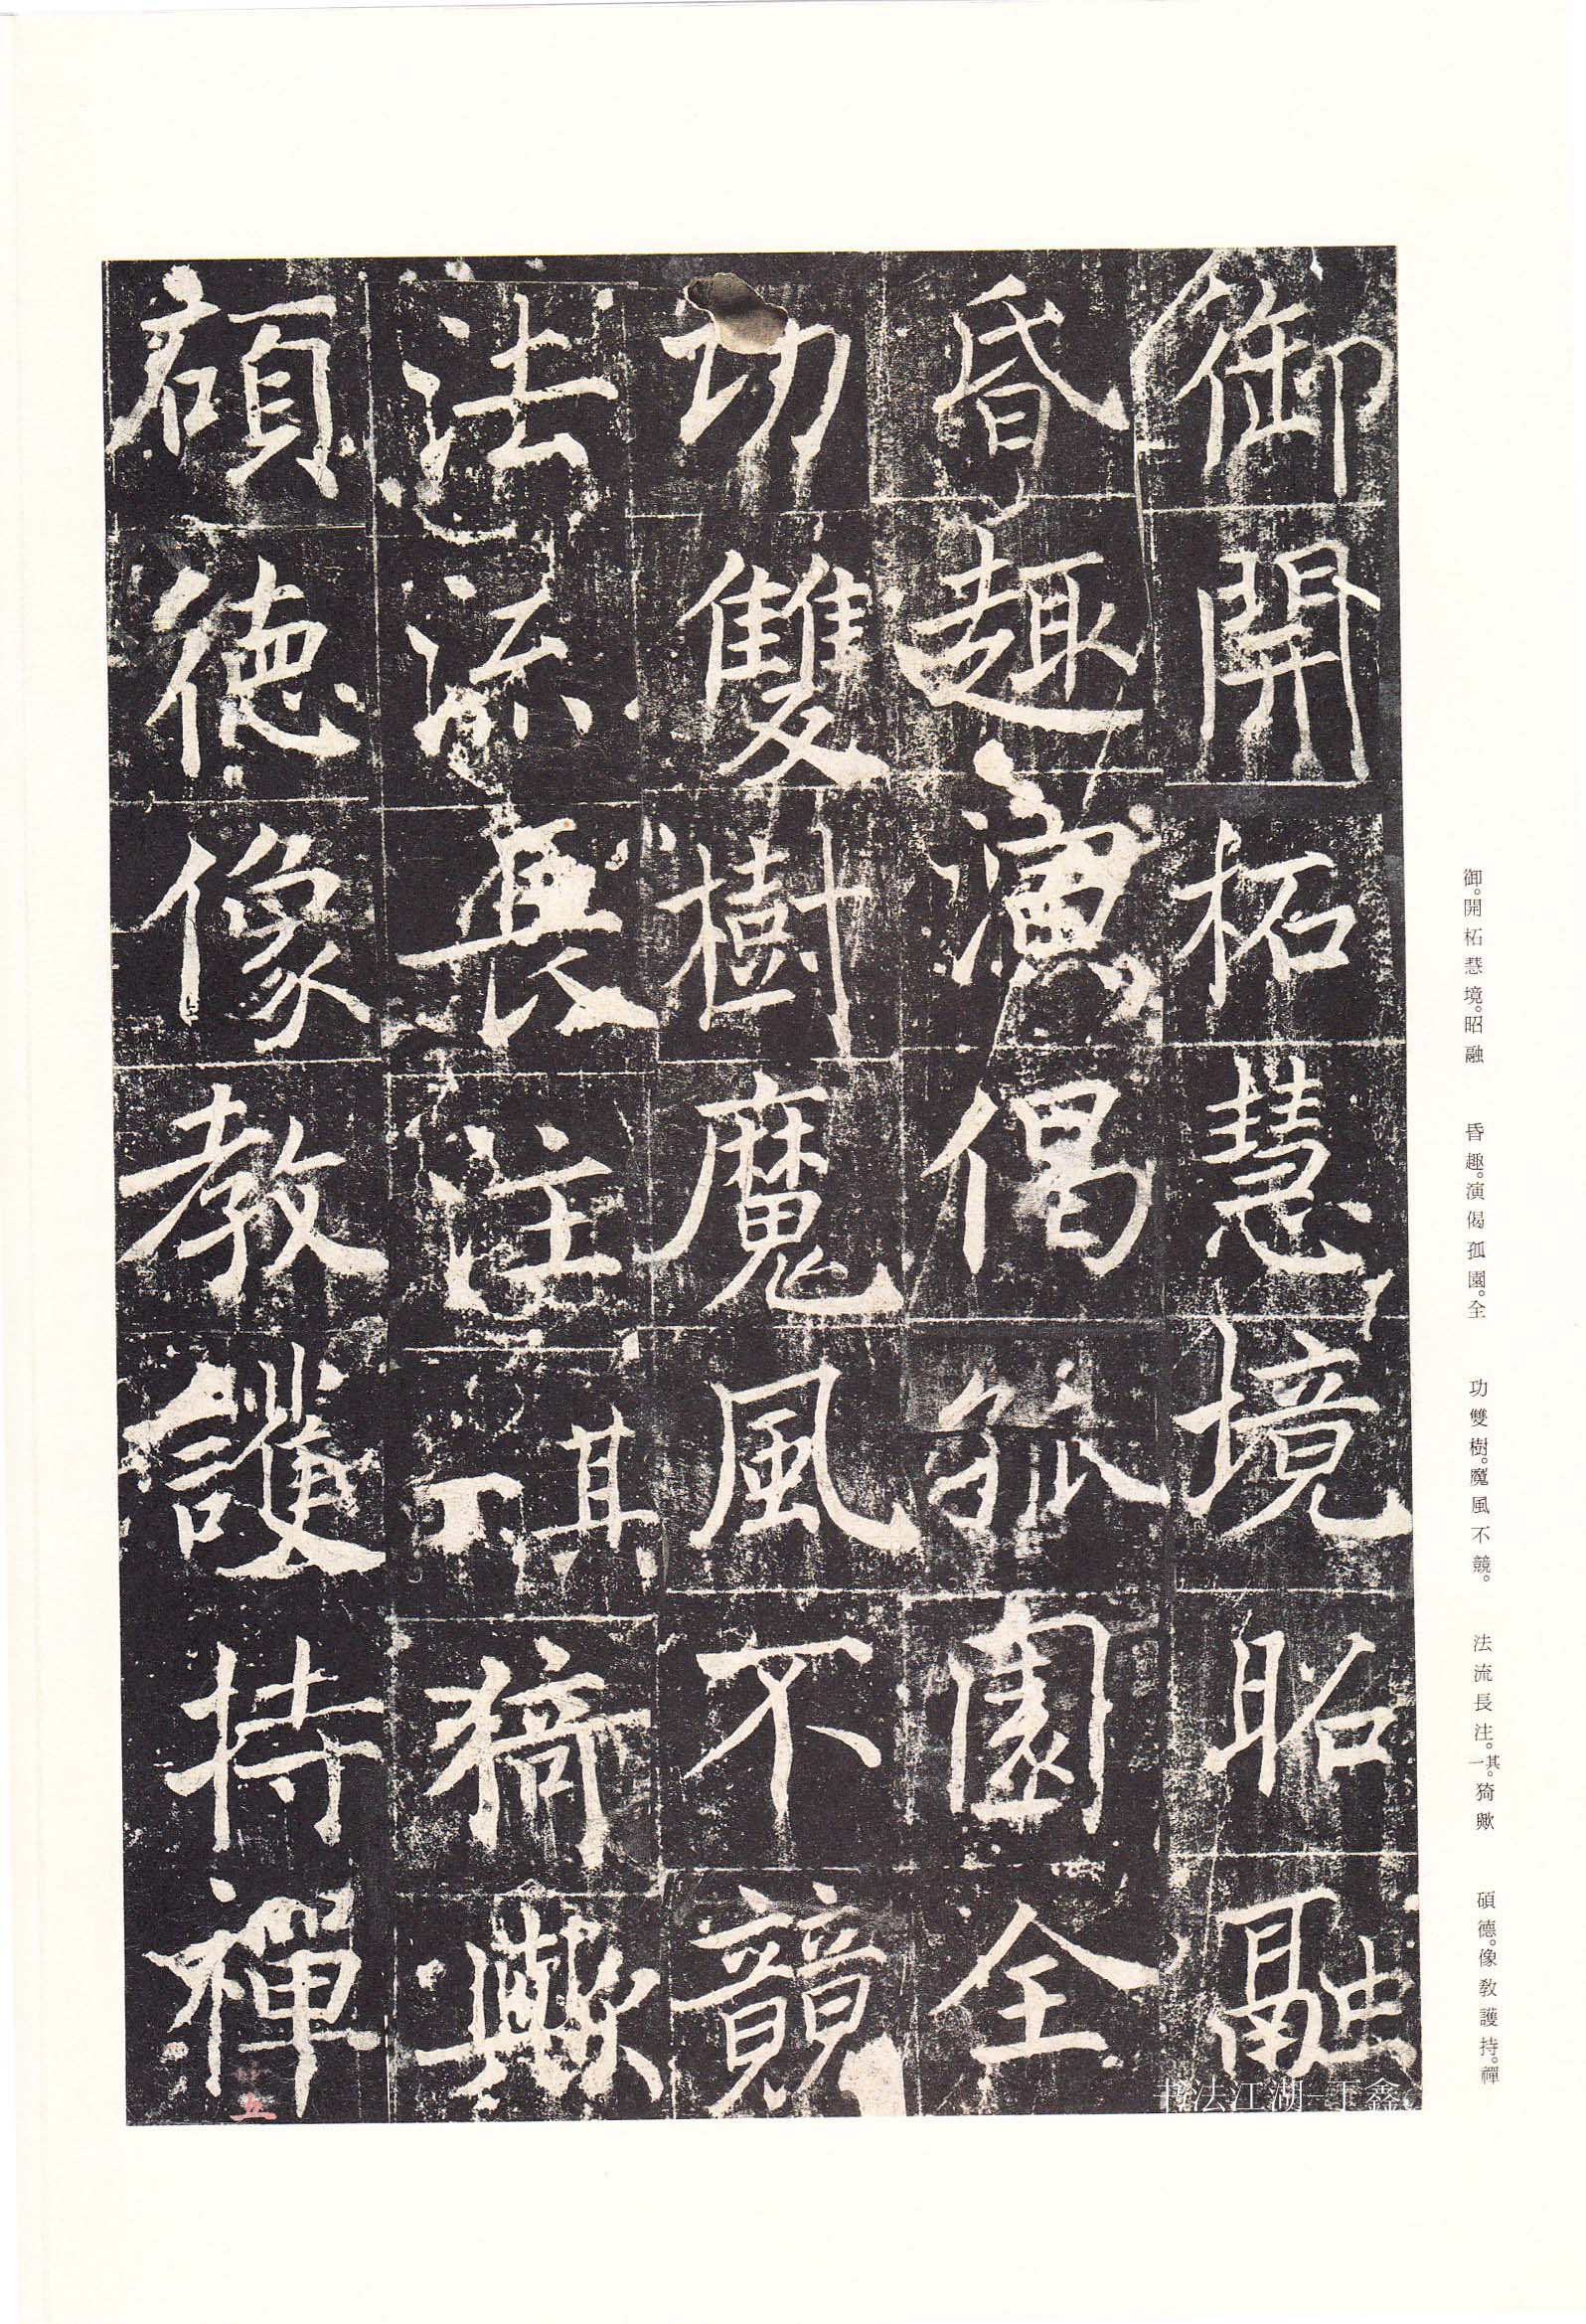 御開柘慧境昭融
昏趣演偈孤園全
功雙樹魔風不競
法流長注其一猗歟
碩德像教護持禪
御。開柘慧境。昭融
昏趣。演偈孤園。全
功雙樹。魔風不競。
法流長注。其一。猗歟
碩德。像教護持。禪
五
书法江湖-王鑫